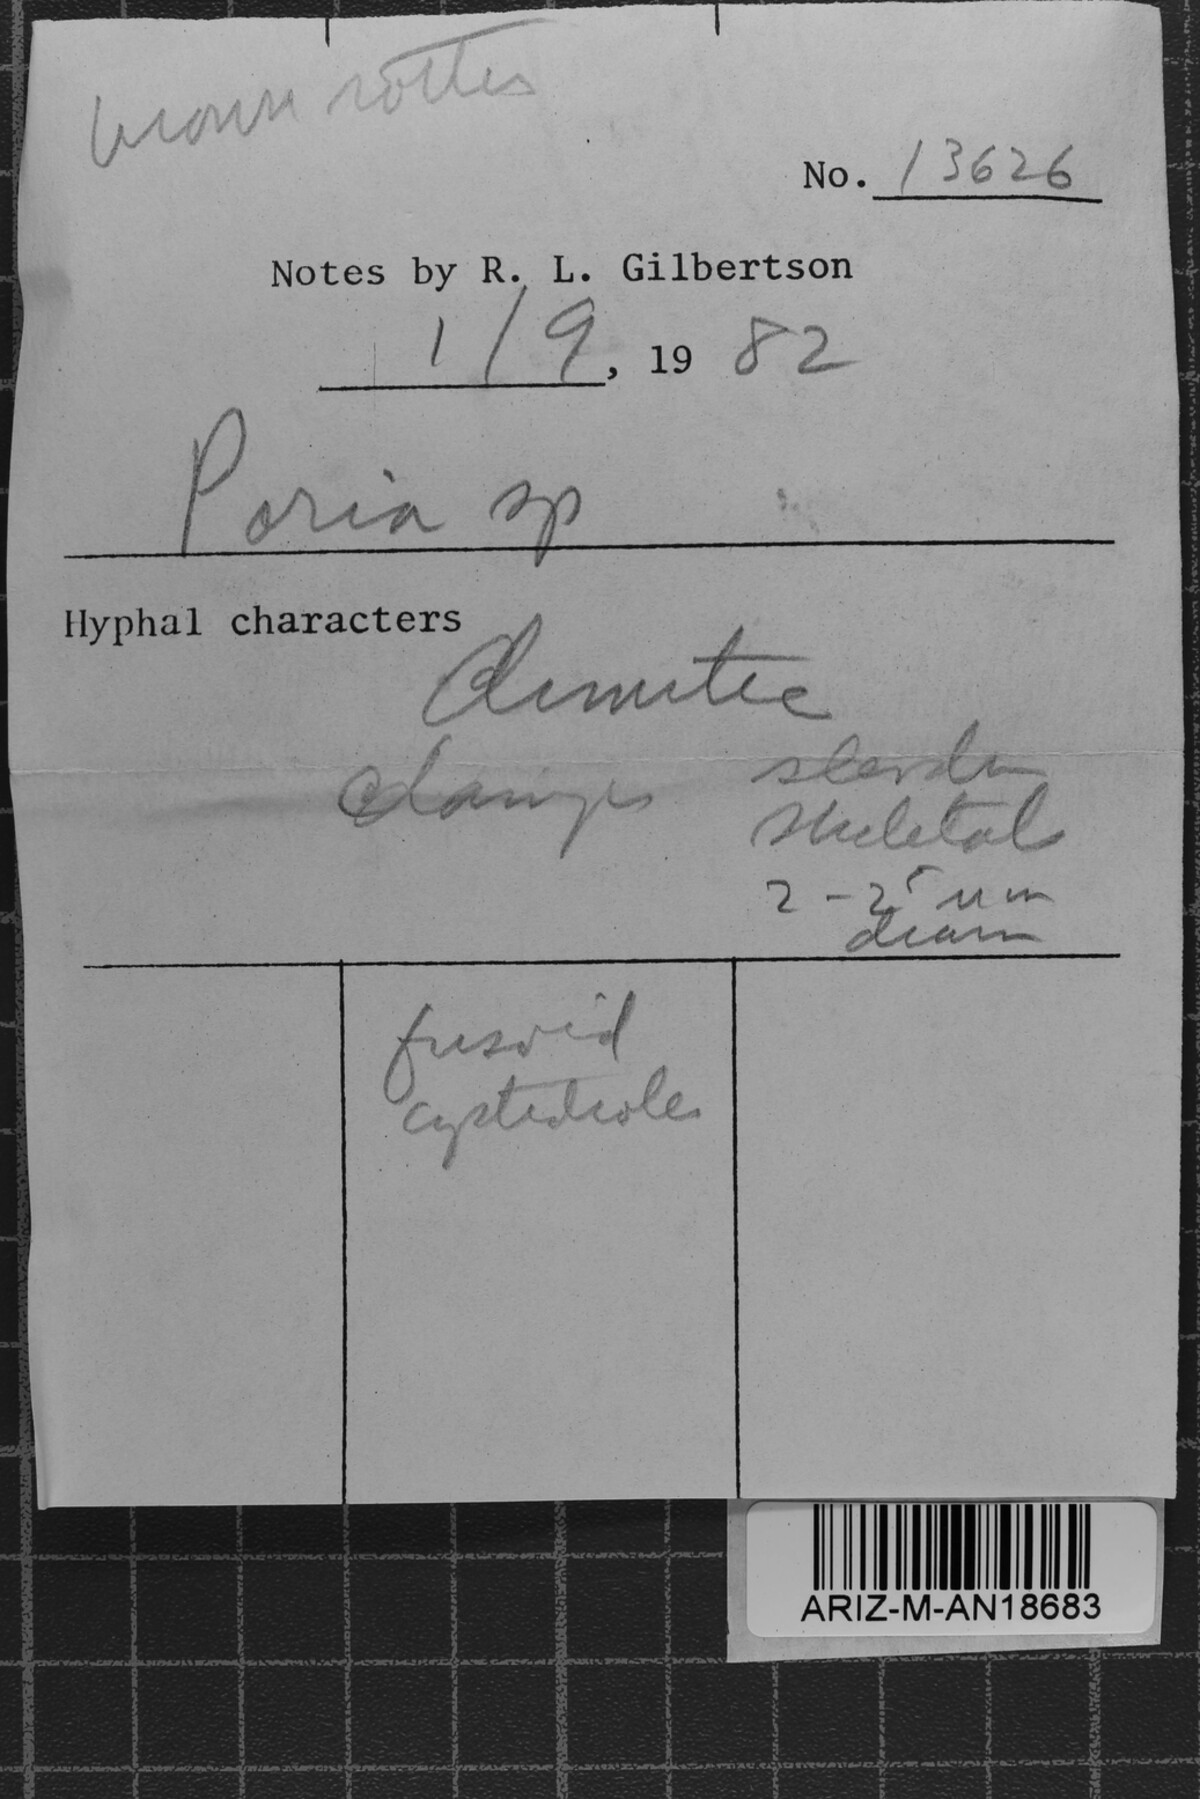 brown rotter
No. 13626
Notes by R. L. Gilbertson
1/9, 19 82
Poria sp
Hyphal characters
dimitic
clamps
slender
skeletals
2-25 um
diam
fusoid
cystidioles
ARIZ-M-AN18683